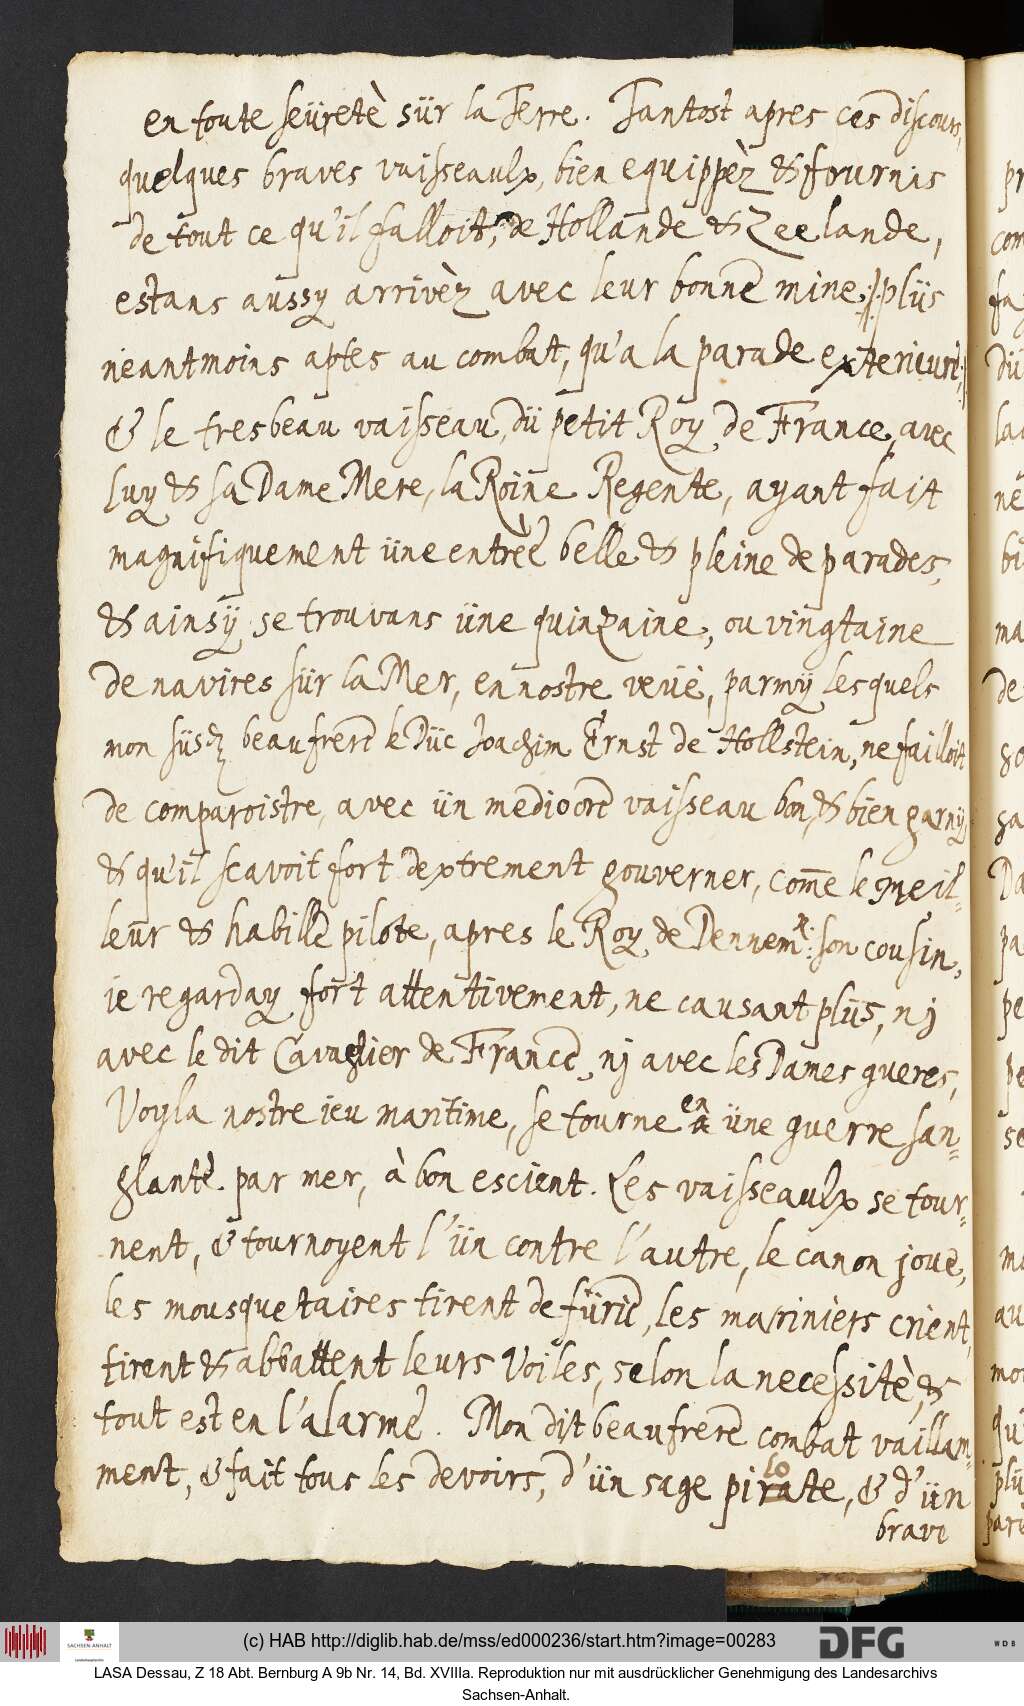 en toute seüretè sür la Terre. Tantost apres ces discours,
quelques braves vaisseaulx, bien equippèz & fournis
de tout ce qu'il falloit, de Hollande & Zeelande,
estans aüssy arrivèz avec leur bonne mine, /: plüs
neantmoins aptes au combat, qu'a la parade exterieure :/
& le tresbeau vaisseau, dü petit Roy de France, avec
luy & sa Dame Mere, la Roine Regente, ayant fait
magnifiquement üne entrèe belle & pleine de parades,
& ainsÿ se trouvans üne quinzaine, ou vingtaine
de navires sür la Mer, en nostre veüe, parmy lesquels
mon süsd beaufrere le Düc Joachim Ernst de Hollstein, ne failloit
de comparoistre, avec ün mediocre vaisseau bon, & bien garny,
& qu'il scavoit fort dextrement gouverner, come le meil=
leur & habille pilote, apres le Roy de Dennemk: son cousin,
ie regarday fort attentivement, ne causant plüs, nj
avec le dit Cavaglier de France, nj avec les Dames gueres,
Voyla nostre ieu maritime, se tourne en a üne guerre san=
glante. par mer, à bon escient. Les vaisseaulx se tour=
nent, & tournoyent l'ün contre l'autre, le canon joue,
les mousquetaires tirent de fürie, les mariniers crient,
tirent & abbattent leurs Voiles, selon la necessitè, &
tout est en l'alarme. Mon dit beaufrere combat vaillam=
ment, & fait tous les devoirs, d'ün sage pirate, lo & d'ün
brave
pr
com
(c) HAB http://diglib.hab.de/mss/ed000236/start.htm?image=00283
SACHSEN-ANHALT
DFG
WDB
LASA Dessau, Z 18 Abt. Bernburg A 9b Nr. 14, Bd. XVIIIa. Reproduktion nur mit ausdrücklicher Genehmigung des Landesarchivs
Sachsen-Anhalt.